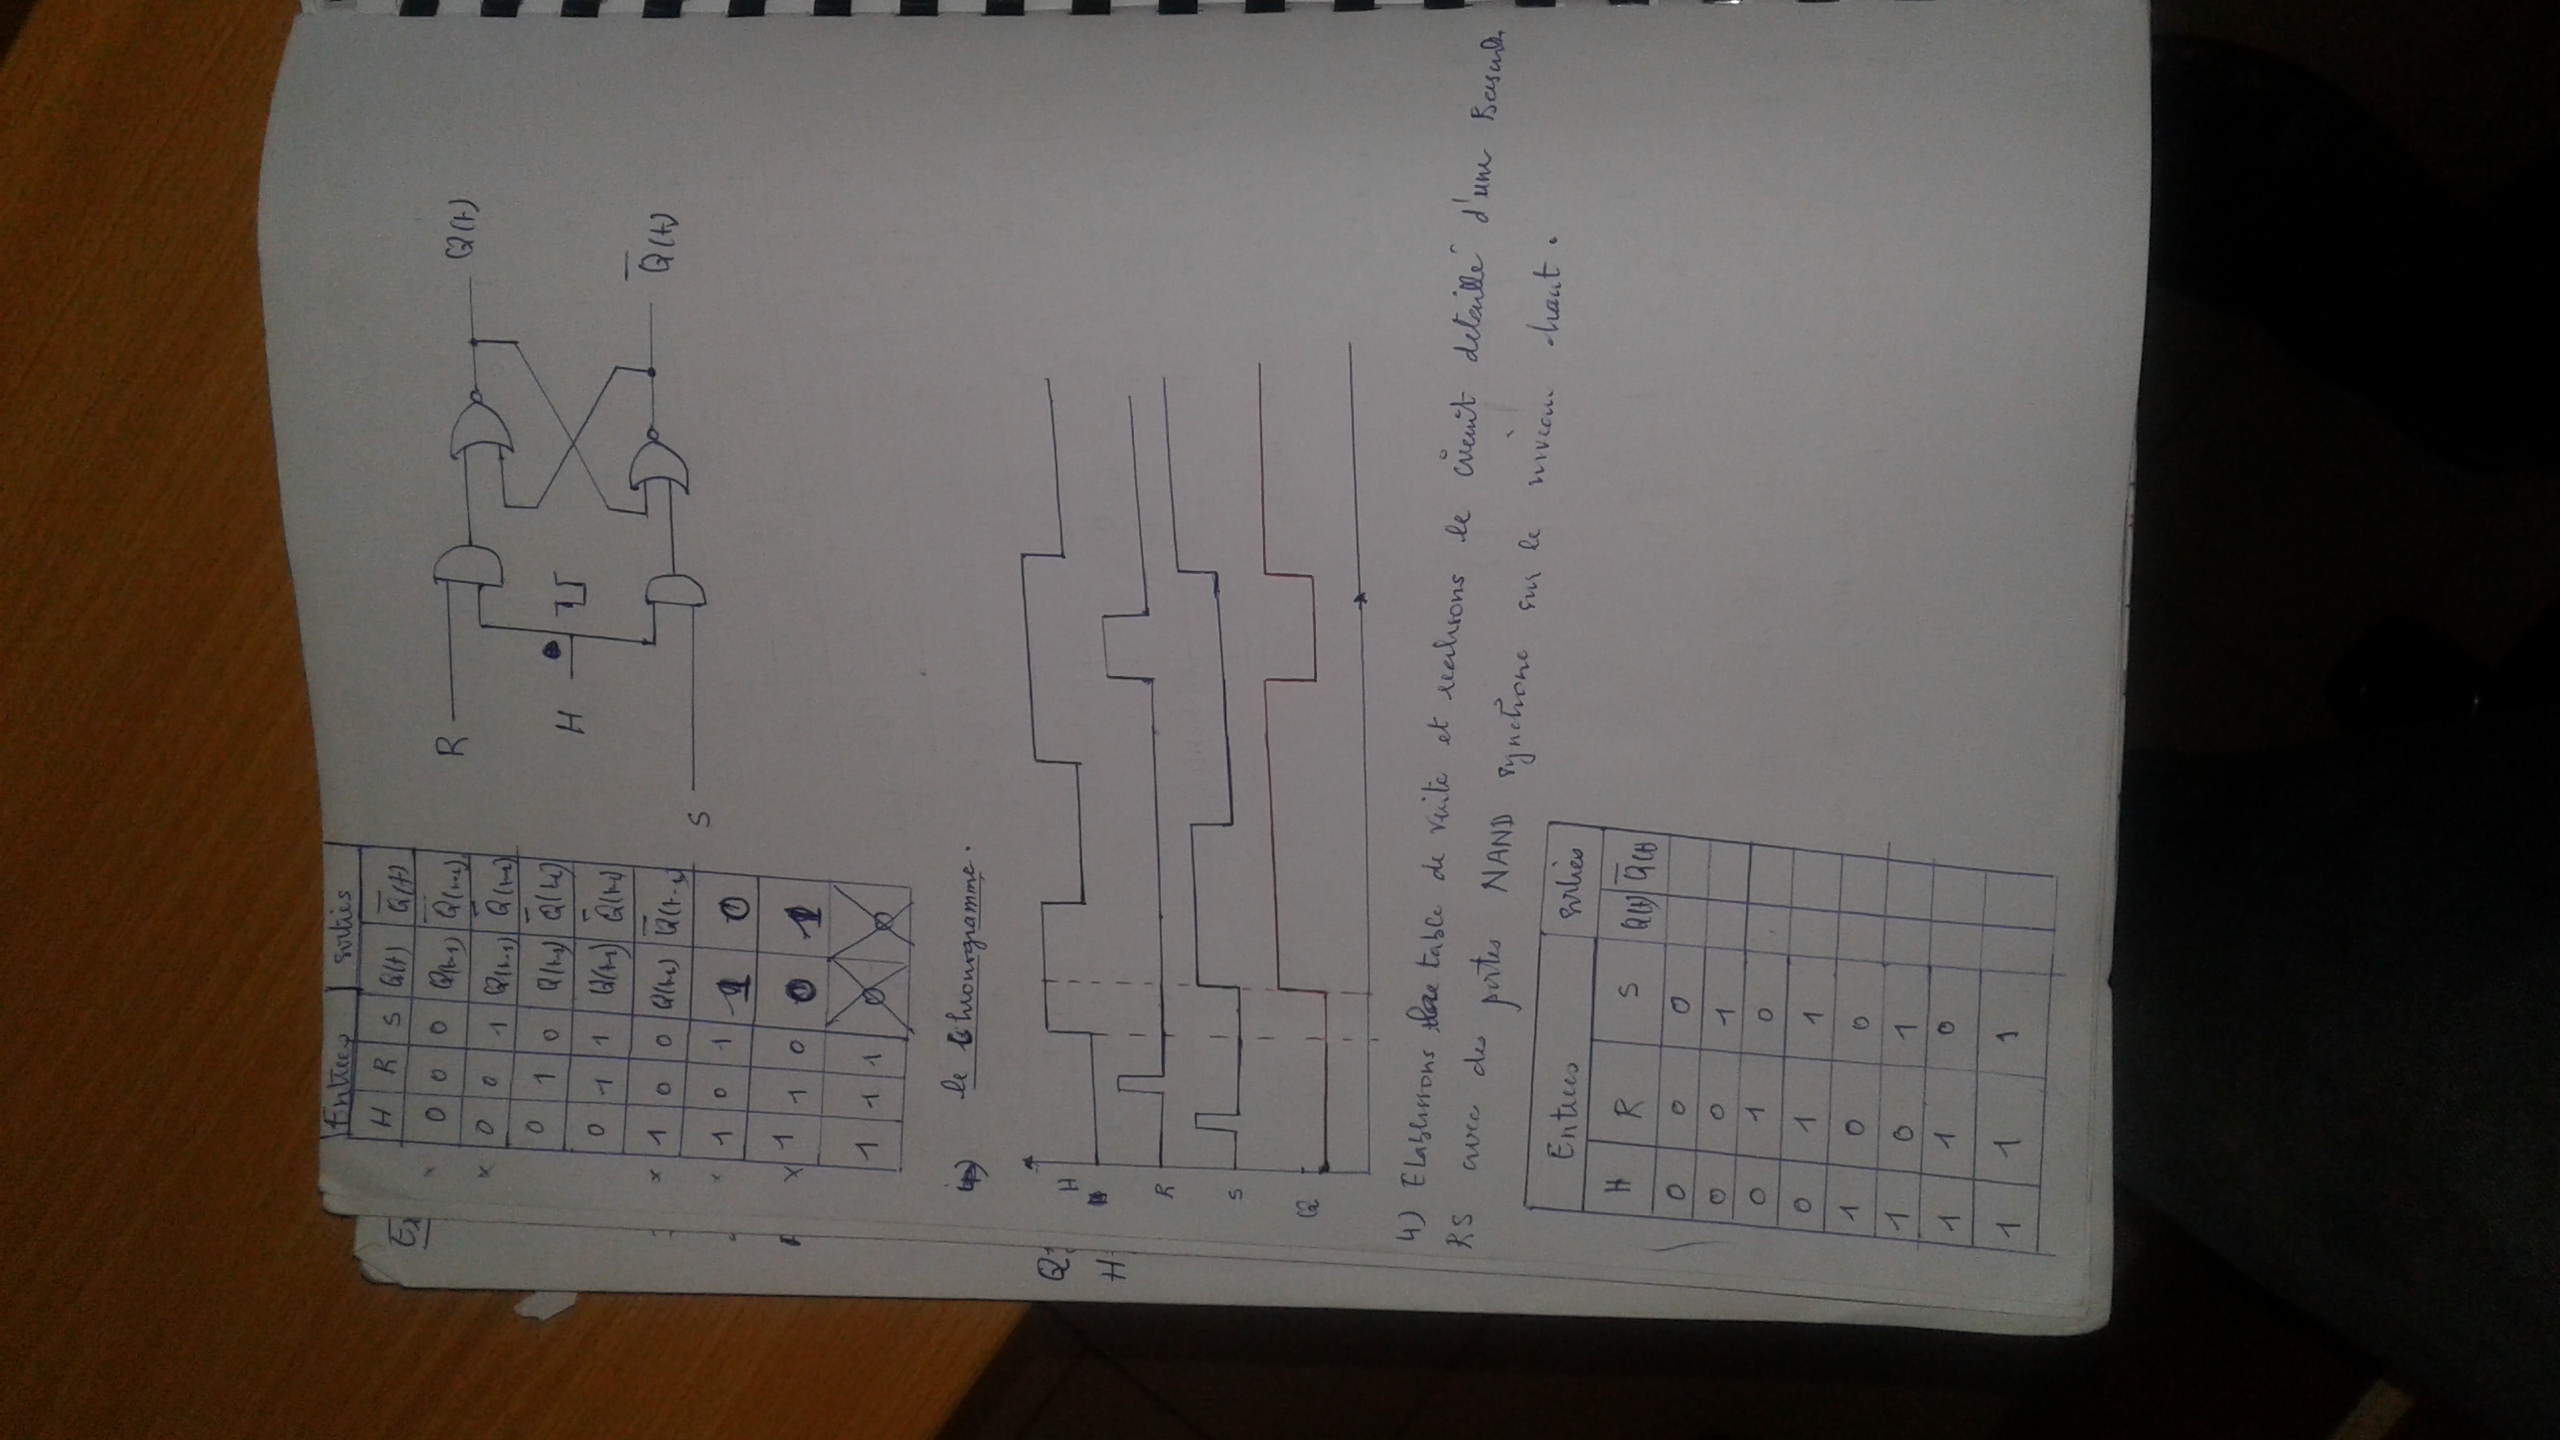 Entrees sorties
H R S Q(t) Q̅(t)
x 0 0 0 Q(t-1) Q̅(t-1)
x 0 0 1 Q(t-1) Q̅(t-1)
0 1 0 Q(t-1) Q̅(t-1)
0 1 1 Q(t-1) Q̅(t-1)
x 1 0 0 Q(t-1) Q̅(t-1)
x 1 0 1 1 0
x 1 1 0 0 1
1 1 1 0 0
R Q(t)
H
S Q̅(t)
le Chronogramme.
H
R
S
Q
4) Etablissons la table de verite et realisons le circuit detaillé d'une Bascule
RS avec des portes NAND synchrone sur le niveau haut.
Entrees sorties
H R S Q(t) Q̅(t)
0 0 0
0 0 1
0 1 0
0 1 1
1 0 0
1 0 1
1 1 0
1 1 1
Ex
Q:
H